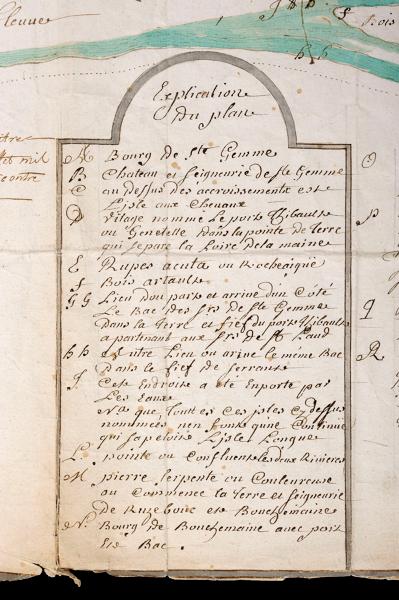 fleuve
Bois
h h
Explication
du plan
A Bourg de Ste Gemme
B Chateau et seigneurie de ste Gemme
C au desus des accroissements est
Lisle aux Chevaux
D vilage nommé Le port Thibault
ou Genetelle dans la pointe de terre
qui separe la Loire de la maine
E Rupes acuta ou Rocheaigüe
f Bois artault
G G Lieu dou part et arrive d'un Côté
Le Bac des srs de Ste Gemme
dans la Terre et fief du port Thibault
apartenant aux srs de St Laud
h h est utre Lieu ou arive le même Bac
dans le fief de serrant
J. Cet Endroite a été Enporté par
Les Eaux
que toutes ces isles Cy dessus
nommées nen font qune Continüe
qui sapeloit Lisle Longue
L. pointe ou Confluent les deux Rivieres
M pierre serpente ou Couleuvreuse
ou Commence la Terre et seigneurie
de Ruzebouc et Bouchemaine
N. Bourg de Bouchemaine avec port
Et Bac.
O
P
q
R